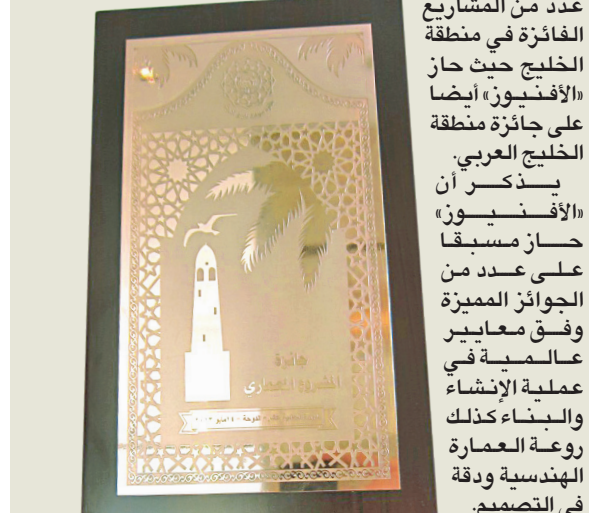 عدد من المشاريع
الفائزة في منطقة
الخليج حيث حاز
«الأفنيوز» أيضا
على جائزة منطقة
الخليج العربي.
يذكر أن
«الأفنيوز»
حاز مسبقا
على عدد من
الجوائز المميزة
وفق معايير
عالمية في
عملية الإنشاء
والبناء كذلك
روعة العمارة
الهندسية ودقة
في التصميم.
جائزة
المشروع المعماري
الدوحة